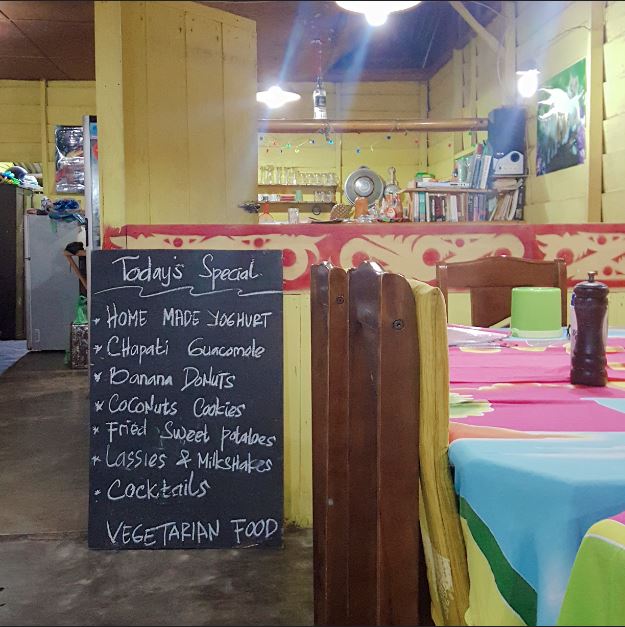 Today's Special
* HOME MADE YOGHURT
* Chapati Guacamole
* Banana DoNuTS
* COCONuts Cookies
* Fried Sweet potatoes
* Lassies & MilkSHakes
* Cocktails
VEGETARIAN FOOD